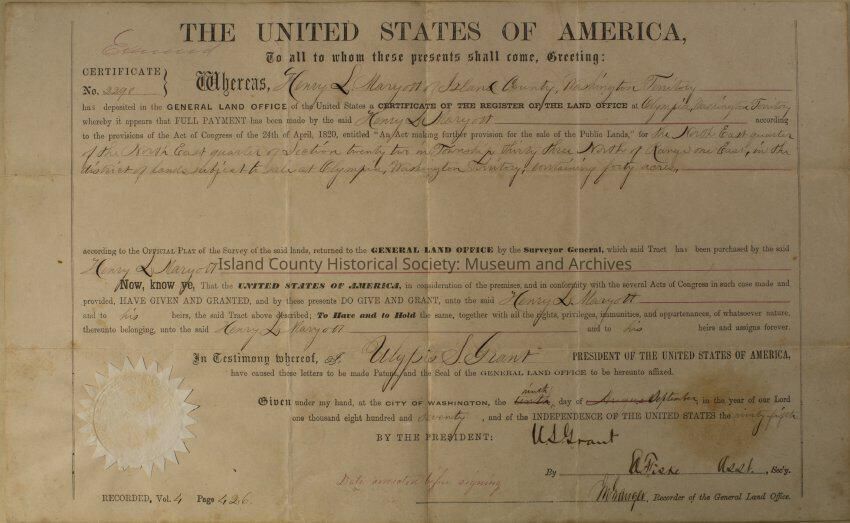 THE UNITED STATES OF AMERICA,
To all to whom these presents shall come, Greeting:
CERTIFICATE
No. 2298
Whereas, Henry L Maryott of Island County, Washington Territory
has deposited in the GENERAL LAND OFFICE of the United States a CERTIFICATE OF THE REGISTER OF THE LAND OFFICE at Olympia, Washington Territory
whereby it appears that FULL PAYMENT has been made by the said Henry L Maryott according
to the provisions of the Act of Congress of the 24th of April, 1820, entitled "An Act making further provision for the sale of the Public Lands," for the North East quarter
of the North East quarter of Section twenty two in Township thirty three North of Range one East, in the
district of lands subject to sale at Olympia, Washington Territory, containing forty acres,
according to the OFFICIAL PLAT of the Survey of the said lands, returned to the GENERAL LAND OFFICE by the Surveyor General, which said Tract has been purchased by the said
Henry L Maryott
Island County Historical Society: Museum and Archives
Now, know ye, That the UNITED STATES OF AMERICA, in consideration of the premises, and in conformity with the several Acts of Congress in such case made and
provided, HAVE GIVEN AND GRANTED, and by these presents DO GIVE AND GRANT, unto the said Henry L Maryott
and to his heirs, the said Tract above described; To Have and to Hold the same, together with all the rights, privileges, immunities, and appurtenances, of whatsoever nature,
thereunto belonging, unto the said Henry L Maryott and to his heirs and assigns forever.
In Testimony whereof, I, Ulysses S. Grant PRESIDENT OF THE UNITED STATES OF AMERICA,
have caused these letters to be made Patent, and the Seal of the GENERAL LAND OFFICE to be hereunto affixed.
ninth
Given under my hand, at the CITY OF WASHINGTON, the day of September, in the year of our Lord
one thousand eight hundred and seventy, and of the INDEPENDENCE OF THE UNITED STATES the ninety fifth
BY THE PRESIDENT: U S Grant
By Asst. Sec'y.
Date corrected before signing
RECORDED, Vol. 4 Page 426. Recorder of the General Land Office.